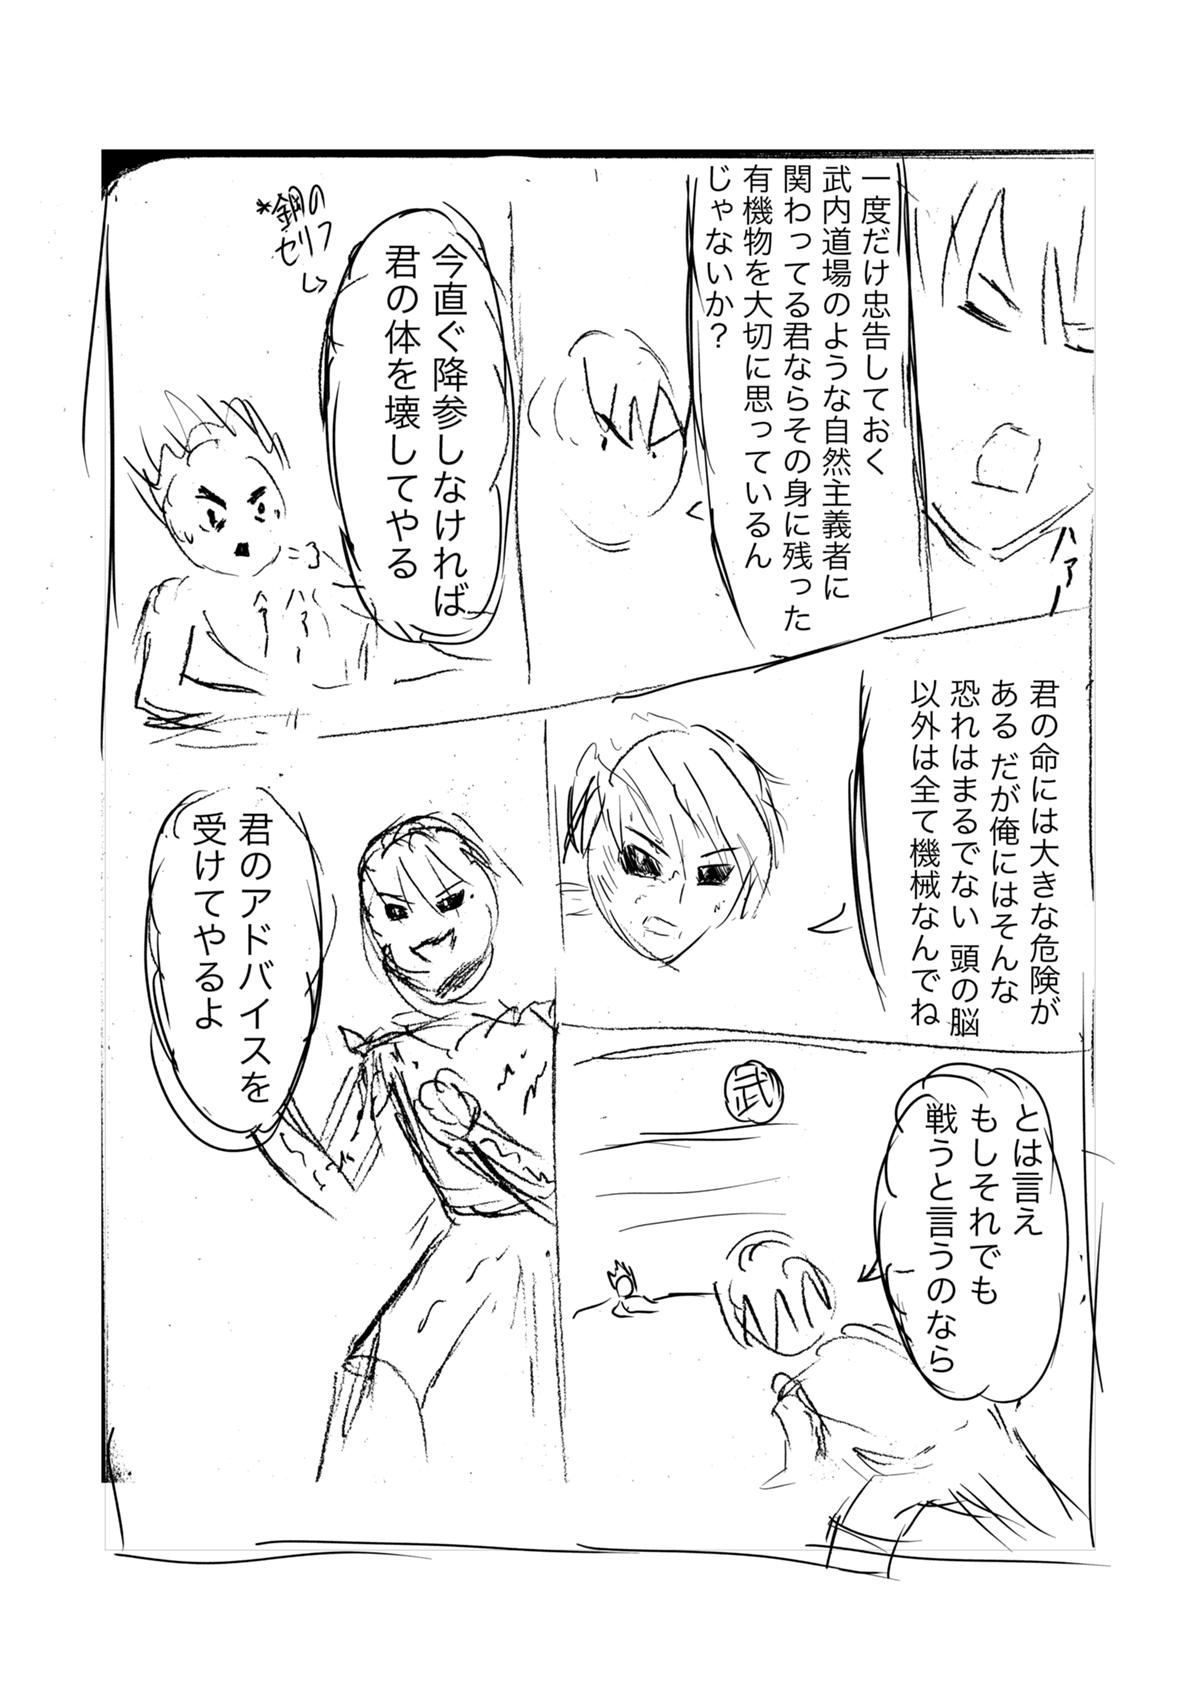 ハァー
一度だけ忠告しておく
武内道場のような自然主義者に
関わってる君ならその身に残った
有機物を大切に思っているん
じゃないか？
*鋼の
セリフ
今直ぐ降参しなければ
君の体を壊してやる
ハァー
ハァー
君の命には大きな危険が
ある だが俺にはそんな
恐れはまるでない 頭の脳
以外は全て機械なんでね
とは言え
もしそれでも
戦うと言うのなら
武
君のアドバイスを
受けてやるよ